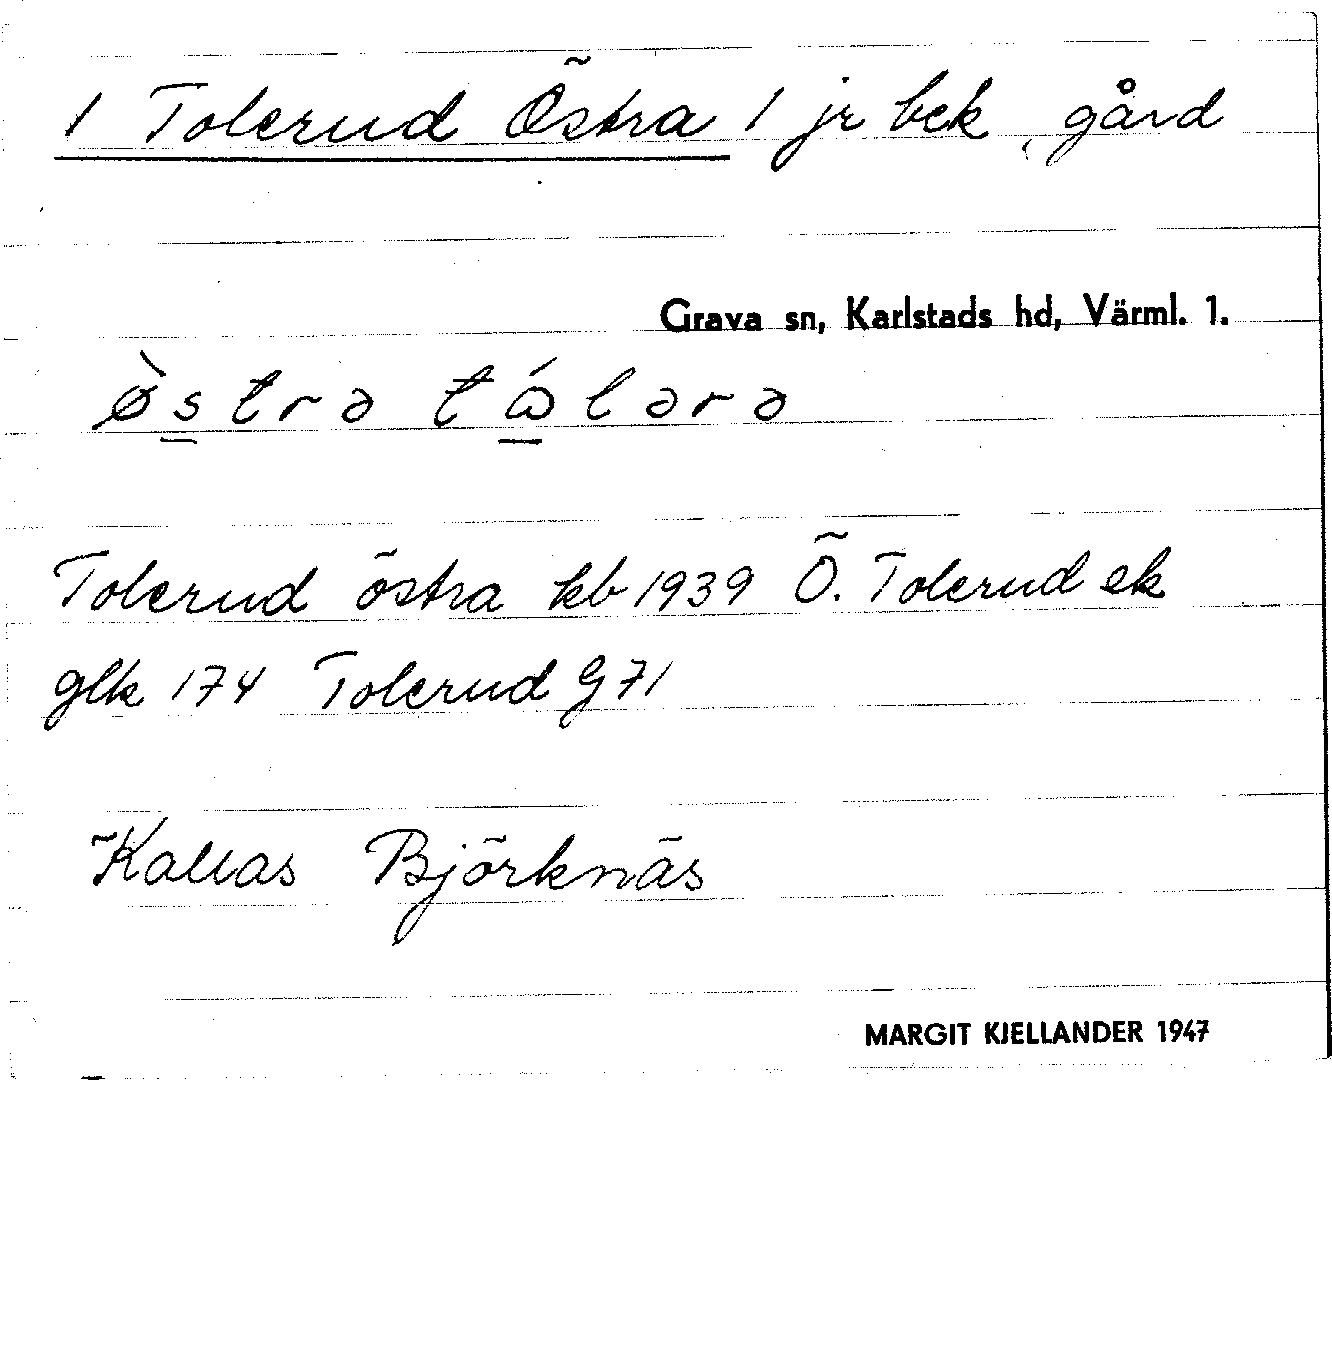 1 Tolerud Östra 1 jr bek, gård
Grava sn, Karlstads hd, Värml. 1.
östrə tålərə
Tolerud östra kb 1939 Ö. Tolerud ek
glk 174 Tolerud G 71
Kallas Björknäs
MARGIT KJELLANDER 1947